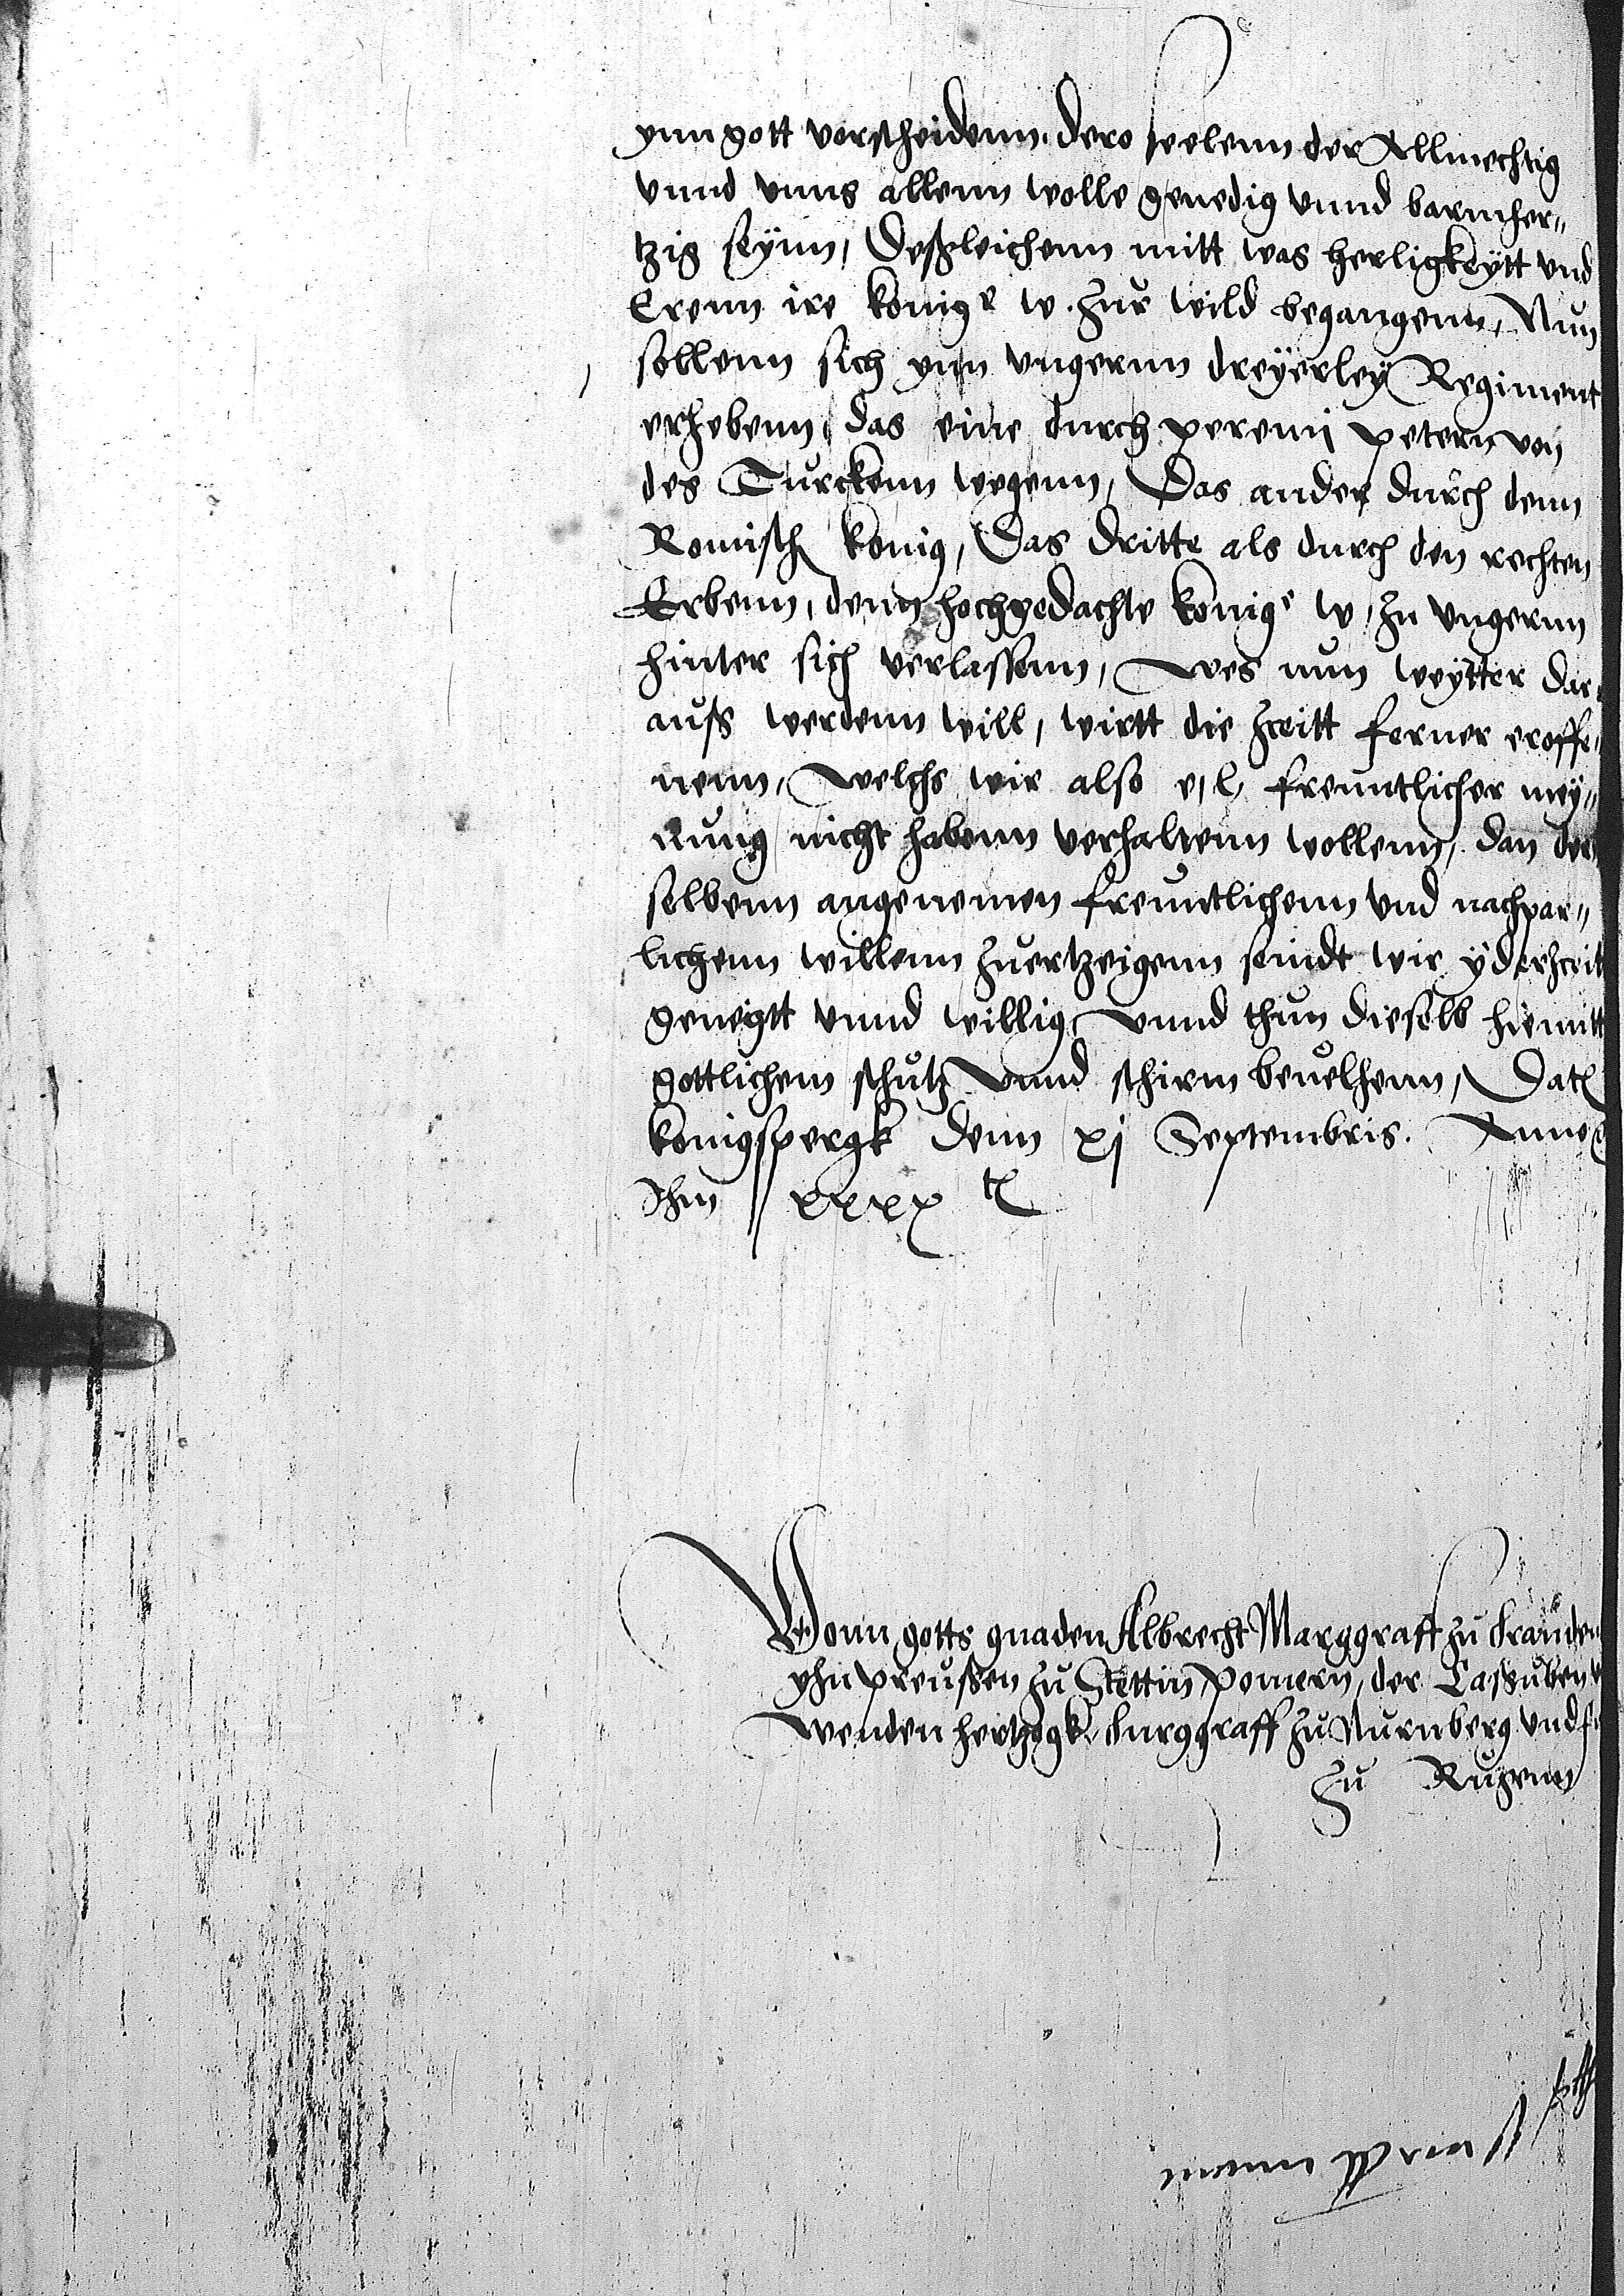 ynn gott vorscheidenn. dero seelenn der Allmechtig
vnnd vnns allenn wolle genedig vnnd barmher„
tzig seÿnn, Desgleichenn mitt was herligkeÿtt vnd
Erenn ire konige w. zur wild begangenn, Nun
sollenn sich ynn vngernn dreÿerleÿ Regiment
erhebenn, das eine durch perenij petern von
des Turckenn wegenn, Das ander durch denn
Romisch konig, Das dritte als durch den rechten
Erbenn, denn hochgedachte konige w, zu vngernn
hinter sich verlassenn, wes nun weÿtter dar„
auß werdenn will, wirtt die zeitt ferner eroffe„
nenn, welchs wir also e, l, freuntlicher meÿ„
nung nicht habenn verhaltenn wollenn, dan der
selbenn angenemen freuntlichenn vnd nachpar„
lichenn willenn zuertzeigenn seindt wir ÿderzeitt
geneigtt vnnd willig, vnnd thun dieselb hiemitt
gottlichem schutz vnnd schirm beuelhenn, Dat
konigspergk denn xj Septembris. Anno
Im xxxx
Vonn gotts gnaden Albrecht Marggraff zu Branden
yhn preußen zu Stettin, pomern, der Cassuben v
wenden hertzogk, Burggraff zu Nurnberg vnd f
zu Rugenn